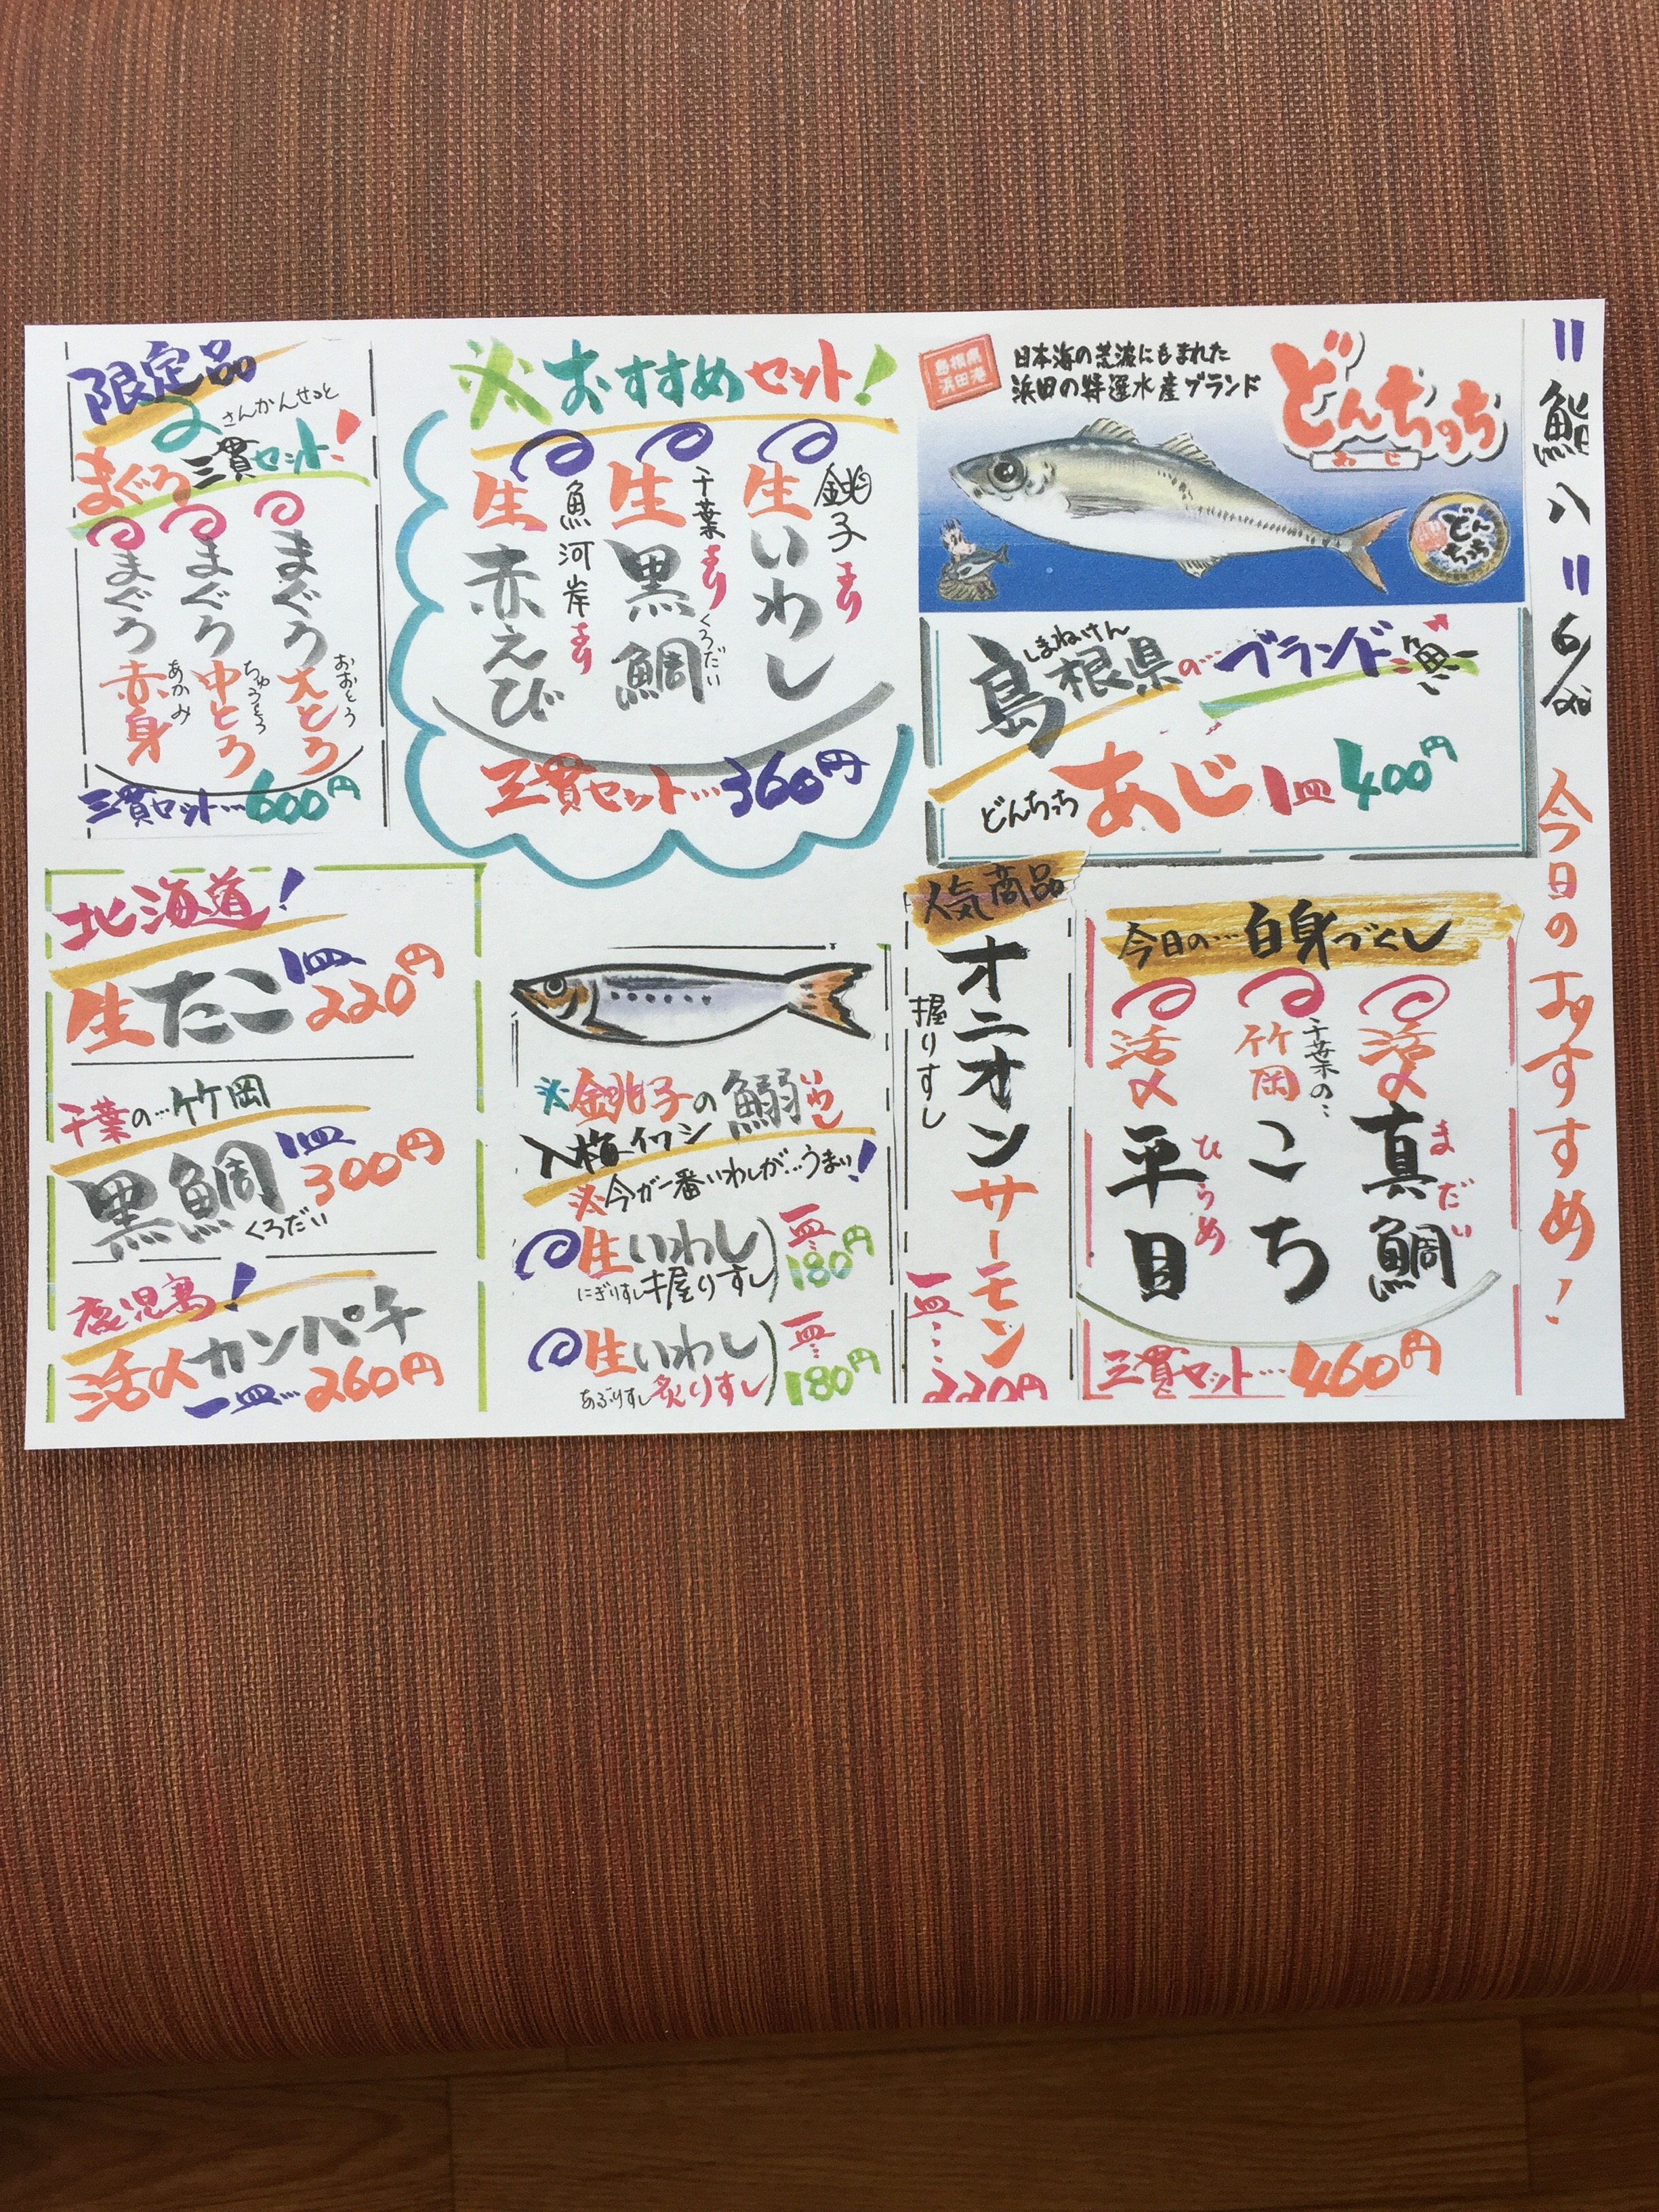 〃鮨八〃
今日のおすすめ!
島根県
浜田港
日本海の荒波にもまれた
浜田の特選水産ブランド
どんちっち
あじ
どん
ちっち
しまねけん
島根県の…ブランド魚
どんちっち あじ 1皿 400円
※おすすめセット!
銚子より
生いわし
千葉より
生黒鯛
くろだい
魚河岸より
生赤えび
三貫セット…360円
限定品
さんかんせっと
まぐろ三貫セット!
まぐろ大とろ
おおとろ
まぐろ中とろ
ちゅうとろ
まぐろ赤身
あかみ
三貫セット…600円
今日の…白身づくし
活〆真鯛
まだい
千葉の…
竹岡こち
活〆平目
ひらめ
三貫セット…460円
人気商品
オニオンサーモン
握りすし
一皿…220円
※銚子の鰯
いわし
入梅イワシ
※今が一番いわしが…うまい!
生いわし
にぎりすし 握りすし
一皿…180円
生いわし
あぶりすし 炙りすし
一皿…180円
北海道!
生たこ 1皿 220円
千葉の…竹岡
黒鯛 1皿 300円
くろだい
鹿児島!
活〆カンパチ
一皿…260円